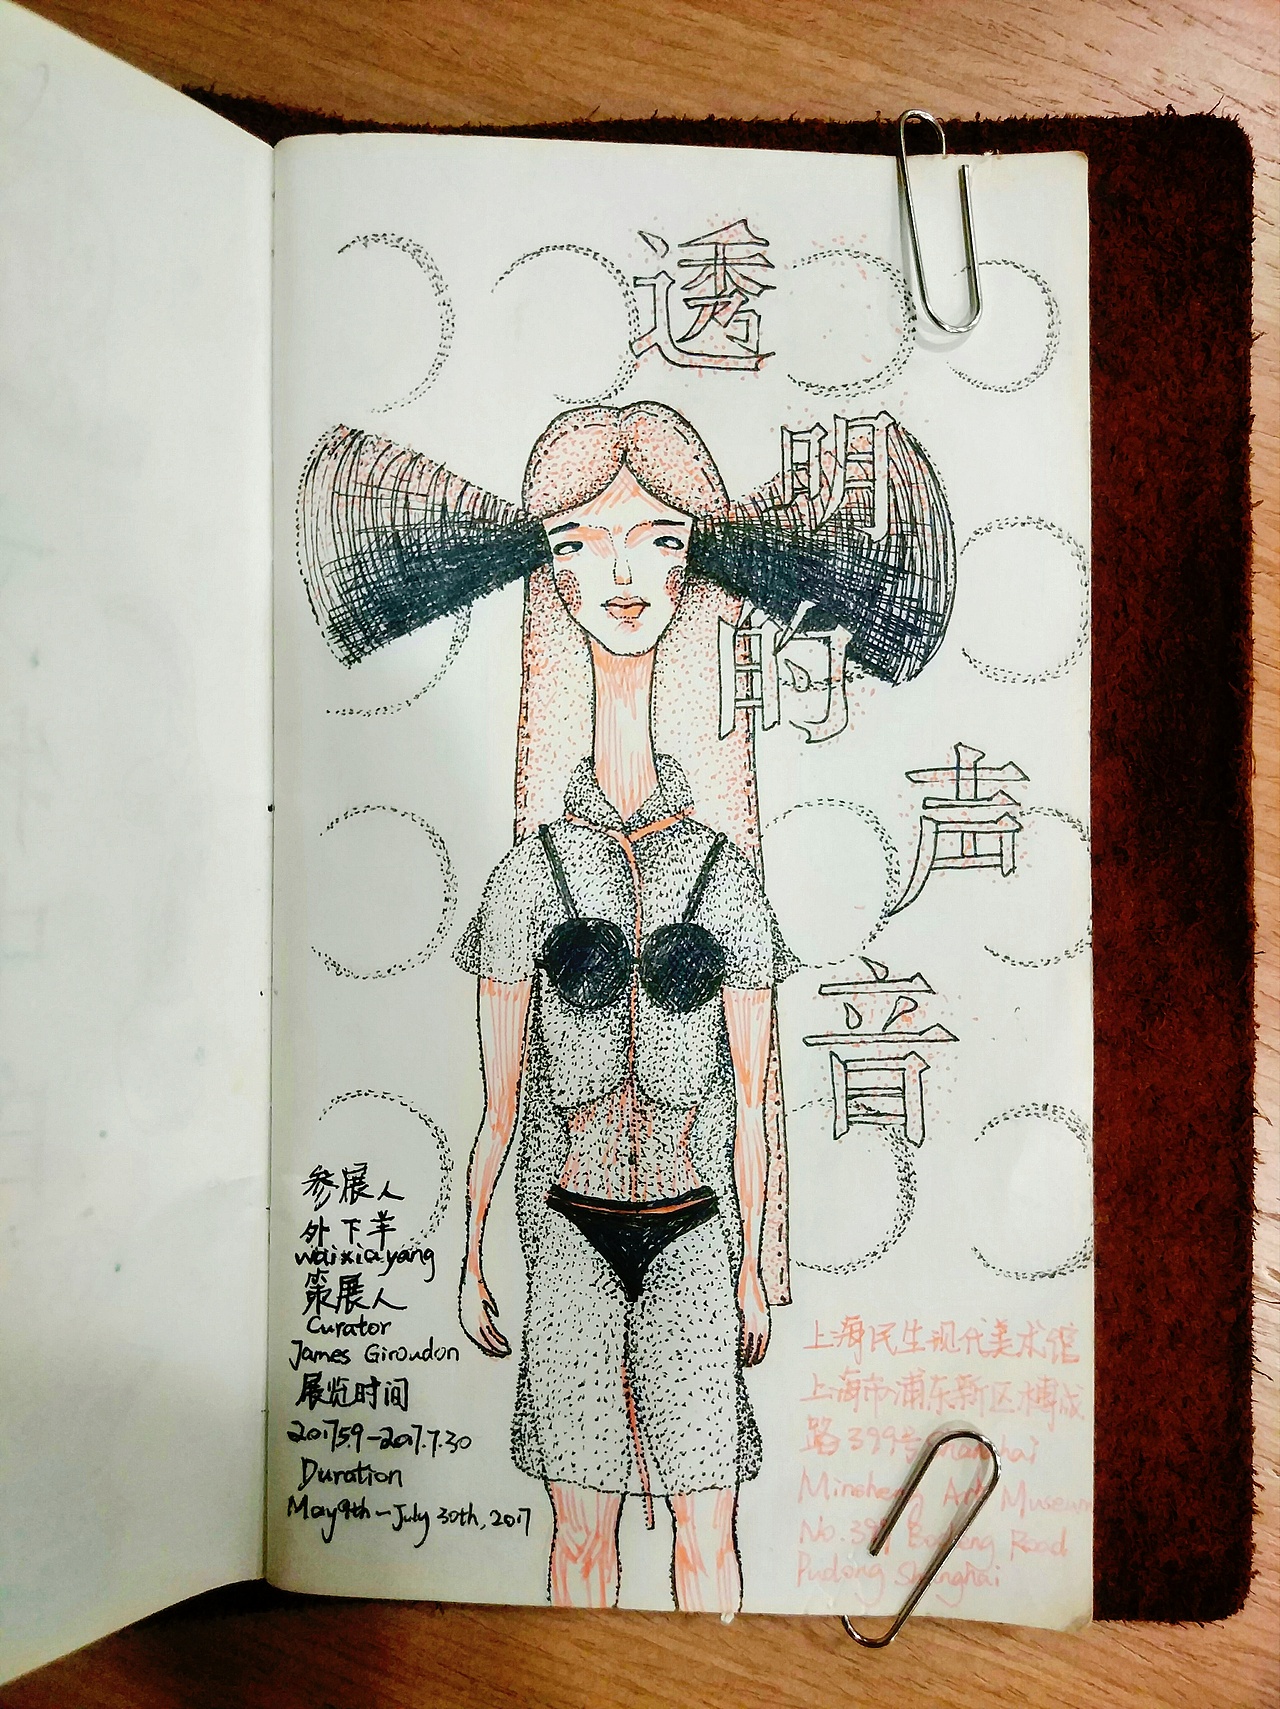 透
明
的
声
音
参展人
外下羊
waixiayang
策展人
Curator
James Giroudon
展览时间
2017.5.9-2017.7.30
Duration
May 9th-July 30th, 2017
上海民生现代美术馆
上海市浦东新区博成
路399号 Shanghai
Minsheng Art Museum
No.399 Road
Pudong Shanghai